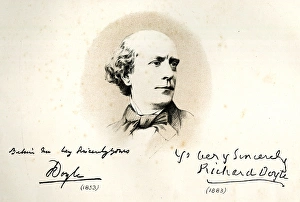 Believe me very sincerely yours
Doyle
(1853)
Yrs Very Sincerely
Richard Doyle
(1883)